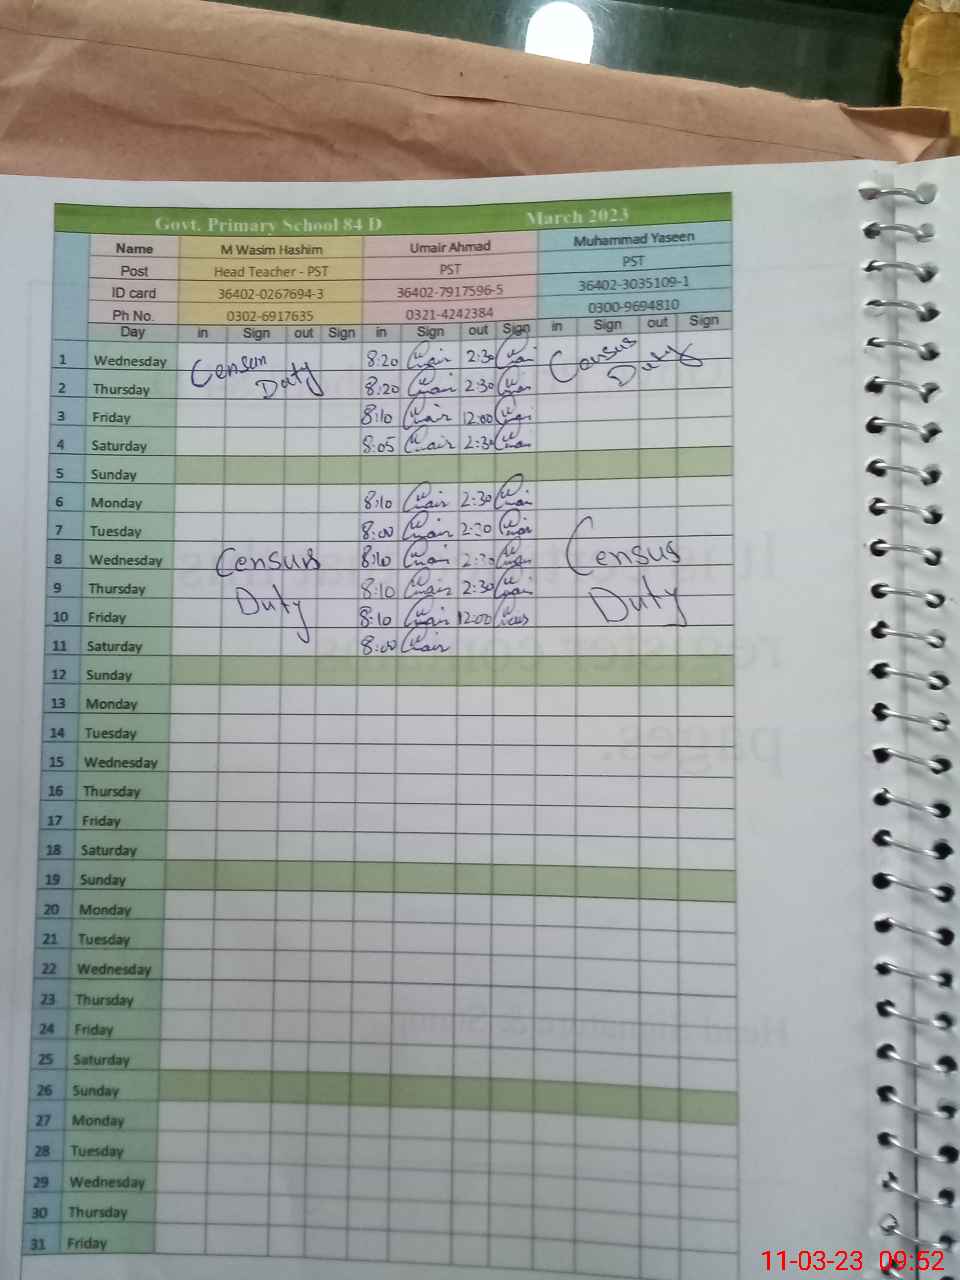 Govt. Primary School 84 D March 2023
Name M Wasim Hashim Umair Ahmad Muhammad Yaseen
Post Head Teacher - PST PST PST
ID card 36402-0267694-3 36402-7917596-5 36402-3035109-1
Ph No. 0302-6917635 0321-4242384 0300-9694810
Day in Sign out Sign in Sign out Sign in Sign out Sign
1 Wednesday 8:20 2:30 Census
2 Thursday Duty 8:20 2:30 Duty
3 Friday 8:10 12:00
4 Saturday 8:05 2:30
5 Sunday
6 Monday 8:10 2:30
7 Tuesday 8:00 2:30
8 Wednesday Census 8:10 2:30 Census
9 Thursday Duty 8:10 2:30 Duty
10 Friday 8:10 12:00
11 Saturday 8:00
12 Sunday
13 Monday
14 Tuesday
15 Wednesday
16 Thursday
17 Friday
18 Saturday
19 Sunday
20 Monday
21 Tuesday
22 Wednesday
23 Thursday
24 Friday
25 Saturday
26 Sunday
27 Monday
28 Tuesday
29 Wednesday
30 Thursday
31 Friday
11-03-23 09:52